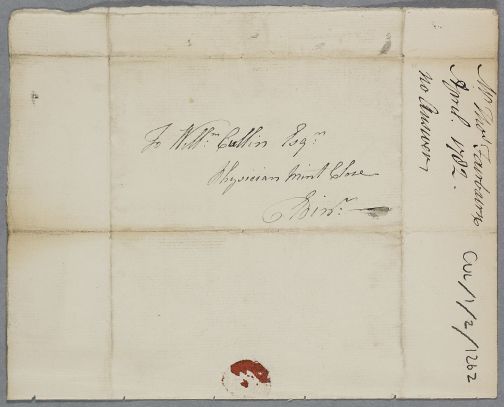 To Willm. Cullin Esqr.
Physician Mint Close
Edinr.
Mr Thos. Fairbairn
April 1782.
no Answer
CUL/1/2/1262